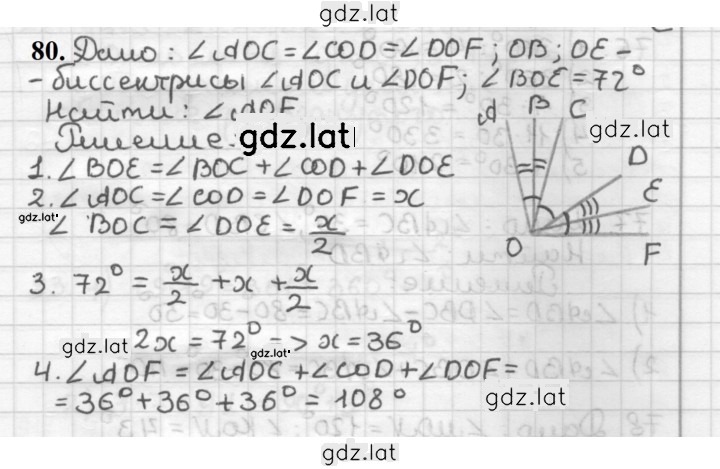 gdz.lat
80. Дано: ∠AOC = ∠COD = ∠DOF; OB; OE -
- биссектрисы ∠AOC и ∠DOF; ∠BOE = 72°
Найти: ∠AOF
Решение:
gdz.lat
1. ∠BOE = ∠BOC + ∠COD + ∠DOE
2. ∠AOC = ∠COD = ∠DOF = x
gdz.lat
∠BOC = ∠DOE = x/2
3. 72° = x/2 + x + x/2
gdz.lat
2x = 72° => x = 36°
gdz.lat
4. ∠AOF = ∠AOC + ∠COD + ∠DOF =
= 36° + 36° + 36° = 108°
gdz.lat
A B C
gdz.lat
D
E
O F
gdz.lat